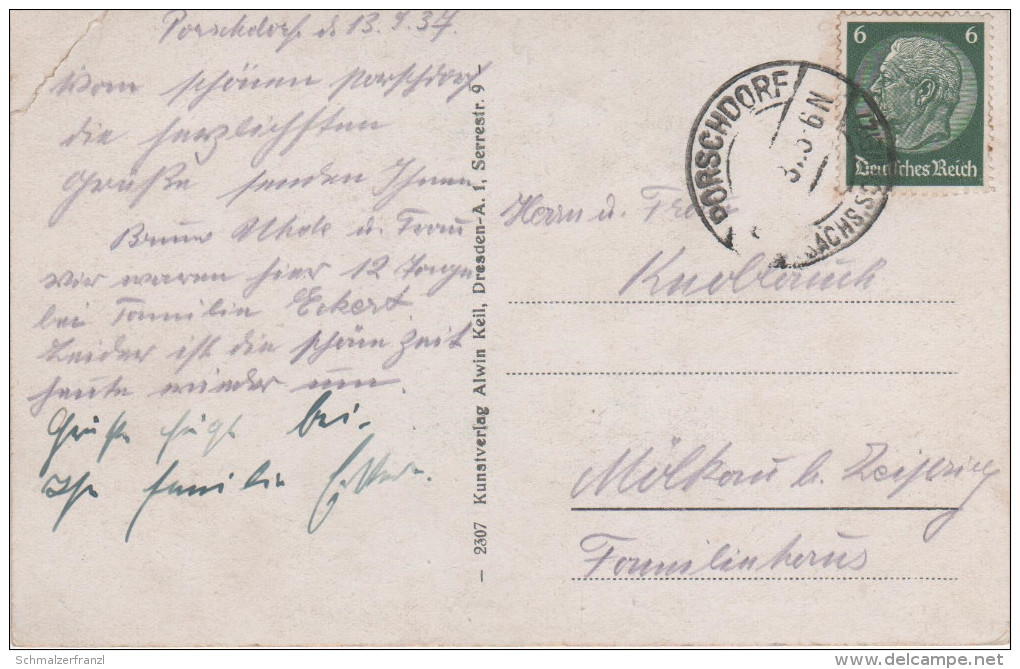 Porschdorf d. 13.7.37.
Vom schönen Porschdorf
die herzlichsten
Grüße senden Ihnen
Bruno u. Frau
Wir waren hier 12 Tage
bei Familie Eckert
Leider ist die schöne Zeit
heute wieder um.
Grüße fügt bei.
Ihr Familie
— 2307 Kunstverlag Alwin Keil, Dresden-A. 1, Serrestr. 9 —
6 6
Deutsches Reich
PORSCHDORF
Herrn u. Frau
Knoblauch
Mölkau b. Leipzig
Familienhaus
Schmalzerfranzl
delcampe.net